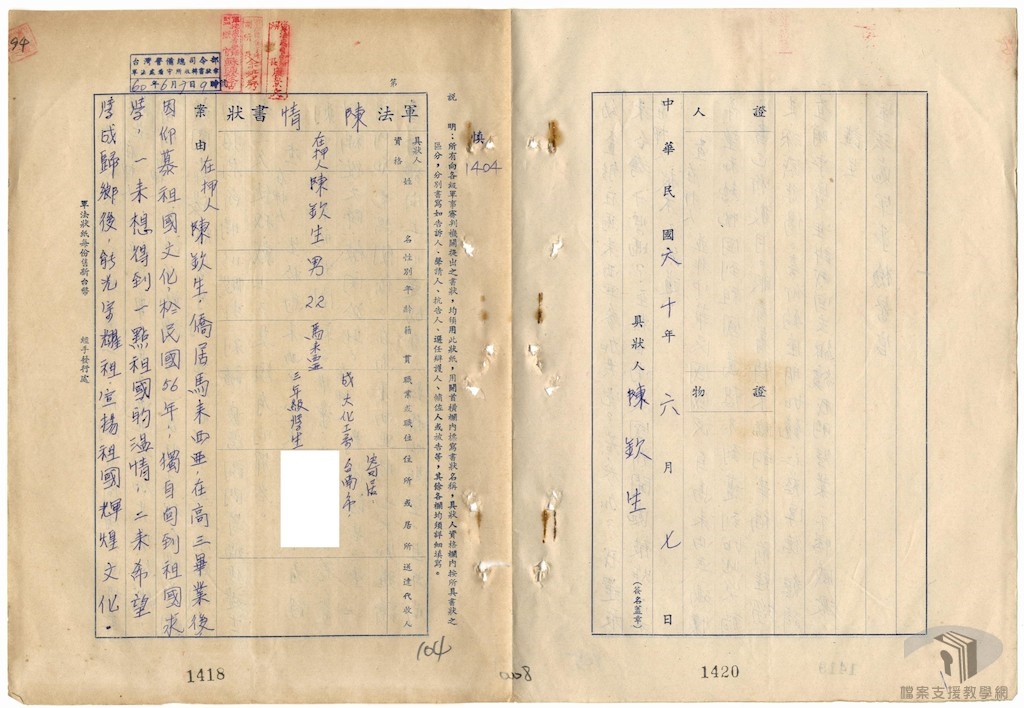 中華民國六十年六月七日
具狀人 陳欽生
(簽名蓋章)
證人
證物
1420
慎
1404
說明：所有向各級軍事審判機關提出之書狀，均須用此狀紙，用開首橫欄內標寫書狀名稱，具狀人資格欄內按所具書狀之
區分，分別書寫如告訴人、聲請人、抗告人、選任辯護人、輔佐人或被告等，其餘各欄均須詳細填寫。
第
軍法陳情書狀
具狀人資格
姓名
性別
年齡
籍貫
職業或職位
住所或居所
送達代收人
在押人陳欽生
男
22
馬來亞
成大化工系
三年級學生
寄居
台南市
案由
在押人陳欽生，僑居馬來西亞，在高三畢業後
因仰慕祖國文化於民國56年，獨自向到祖國求
學，一來想得到一點祖國的溫情，二來希望
學成歸鄉後，能光宗耀祖，宣揚祖國輝煌文化。
軍法狀紙每份售新台幣
經手發行處
台灣警備總司令部
60年6月7日9時
94
104
1418
0008
檔案支援教學網